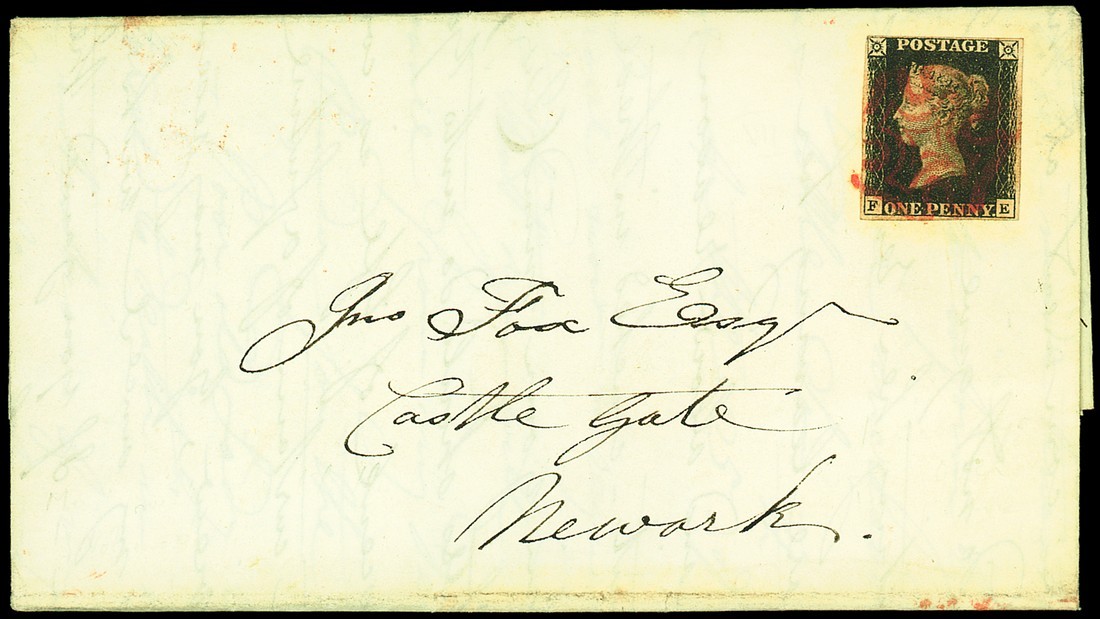 POSTAGE
F ONE PENNY. E
Jno Fox Esqr
Castle Gate
Newark.